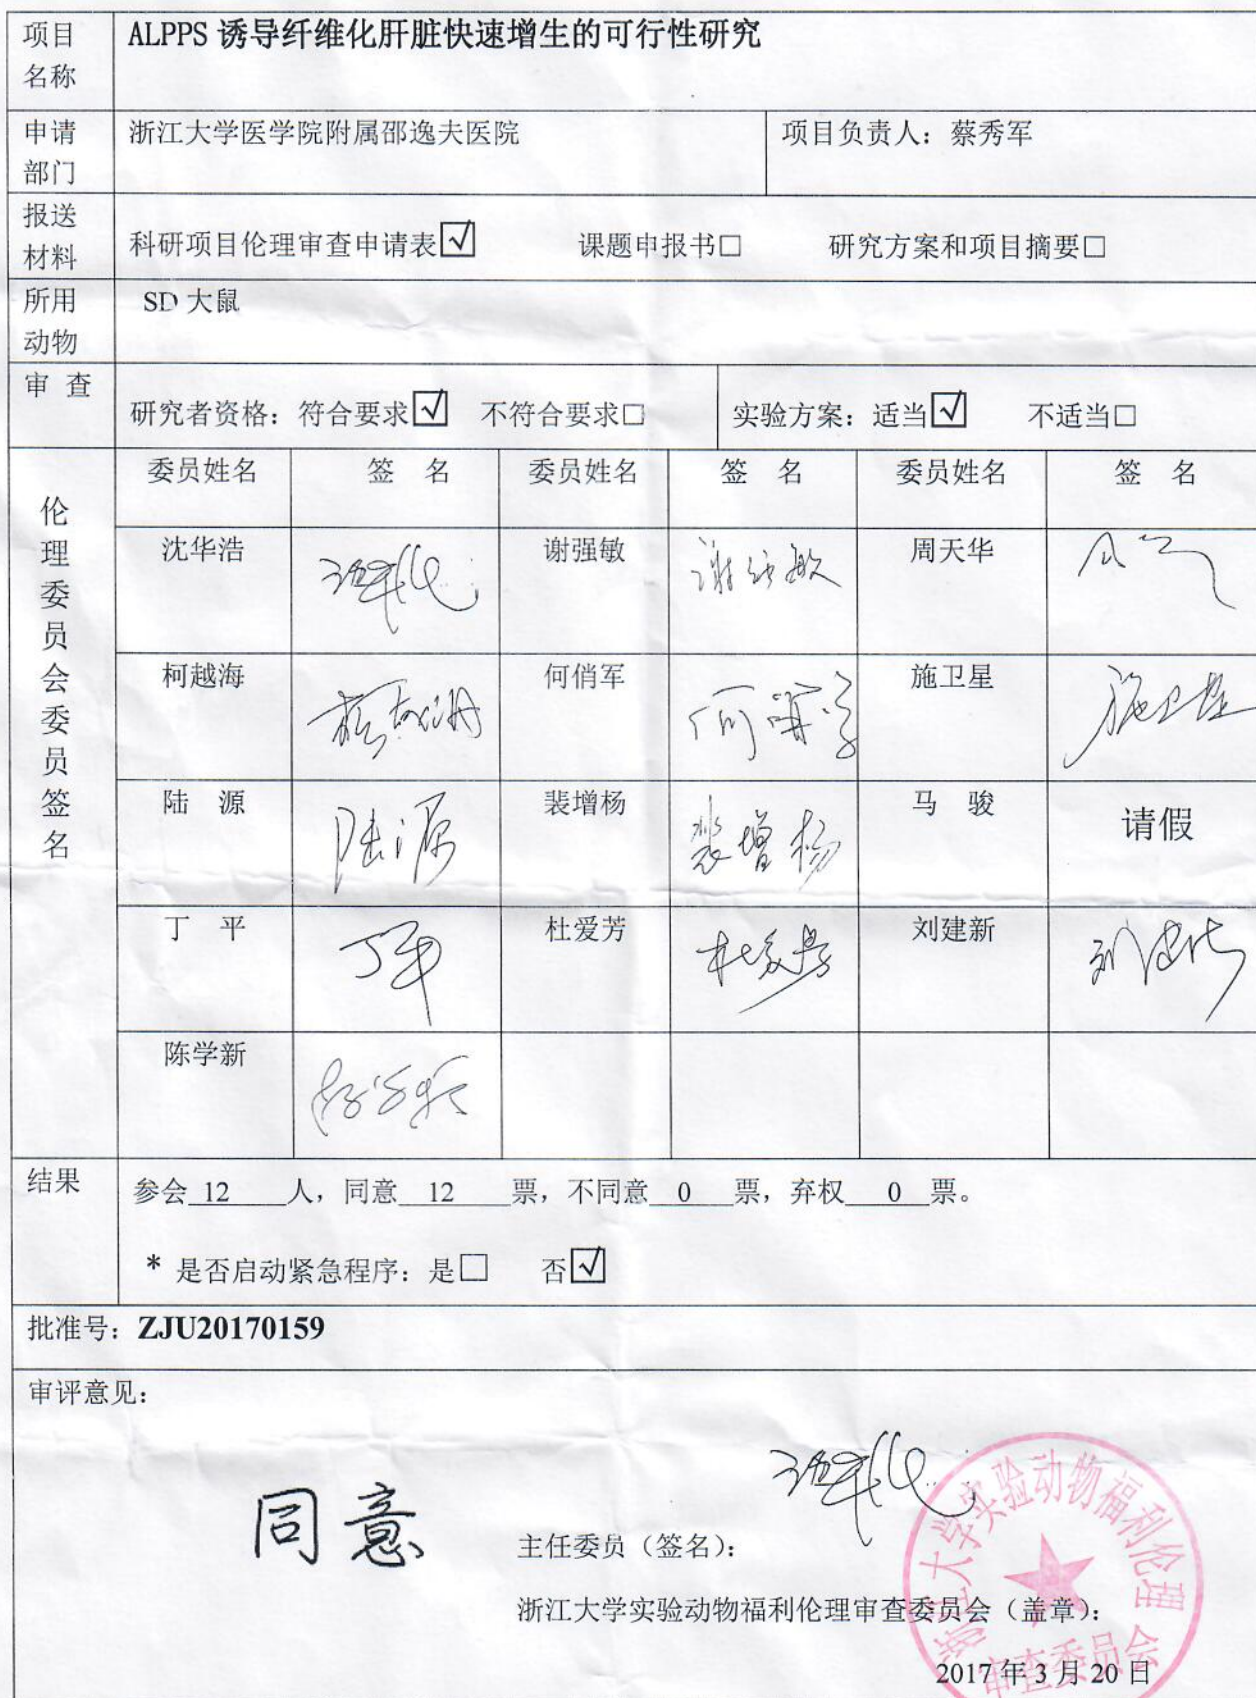 项目名称 ALPPS 诱导纤维化肝脏快速增生的可行性研究
申请部门 浙江大学医学院附属邵逸夫医院 项目负责人：蔡秀军
报送材料 科研项目伦理审查申请表☑ 课题申报书□ 研究方案和项目摘要□
所用动物 SD 大鼠
审 查 研究者资格：符合要求☑ 不符合要求□ 实验方案：适当☑ 不适当□
伦理委员会委员签名
委员姓名 签 名 委员姓名 签 名 委员姓名 签 名
沈华浩 谢强敏 谢强敏 周天华
柯越海 何俏军 施卫星 施卫星
陆 源 陆源 裴增杨 裴增杨 马 骏 请假
丁 平 丁平 杜爱芳 杜爱芳 刘建新
陈学新
结果 参会 12 人，同意 12 票，不同意 0 票，弃权 0 票。
* 是否启动紧急程序：是□ 否☑
批准号：ZJU20170159
审评意见：
同意
主任委员（签名）：
浙江大学实验动物福利伦理审查委员会（盖章）：
2017 年 3 月 20 日
浙江大学实验动物福利伦理
审查委员会